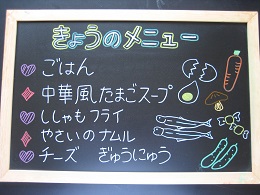 きょうのメニュー
ごはん
中華風たまごスープ
ししゃもフライ
やさいのナムル
チーズ ぎゅうにゅう